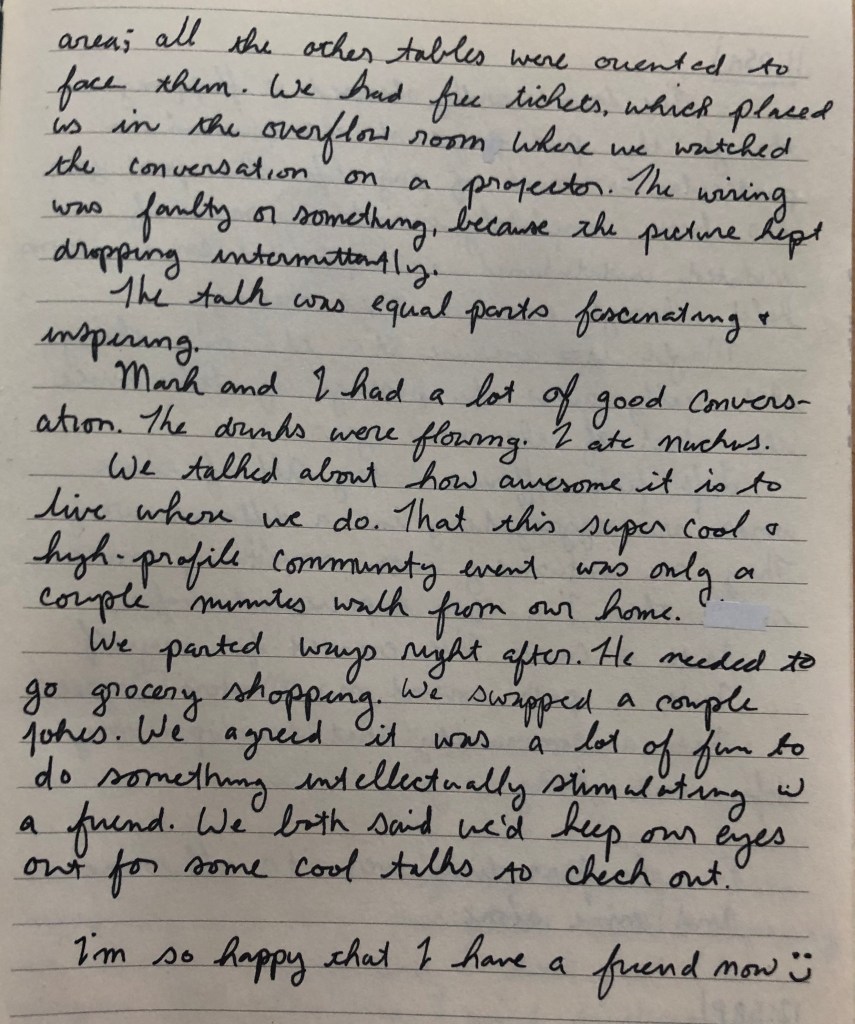 area; all the other tables were oriented to
face them. We had free tickets, which placed
us in the overflow room where we watched
the conversation on a projector. The wiring
was faulty or something, because the picture kept
dropping intermittently.
The talk was equal parts fascinating &
inspiring.
Mark and I had a lot of good convers-
ation. The drinks were flowing. I ate nachos.
We talked about how awesome it is to
live where we do. That this super cool &
high-profile community event was only a
couple minutes walk from our home.
We parted ways right after. He needed to
go grocery shopping. We swapped a couple
jokes. We agreed it was a lot of fun to
do something intellectually stimulating w
a friend. We both said we'd keep our eyes
out for some cool talks to check out.
I'm so happy that I have a friend now :)